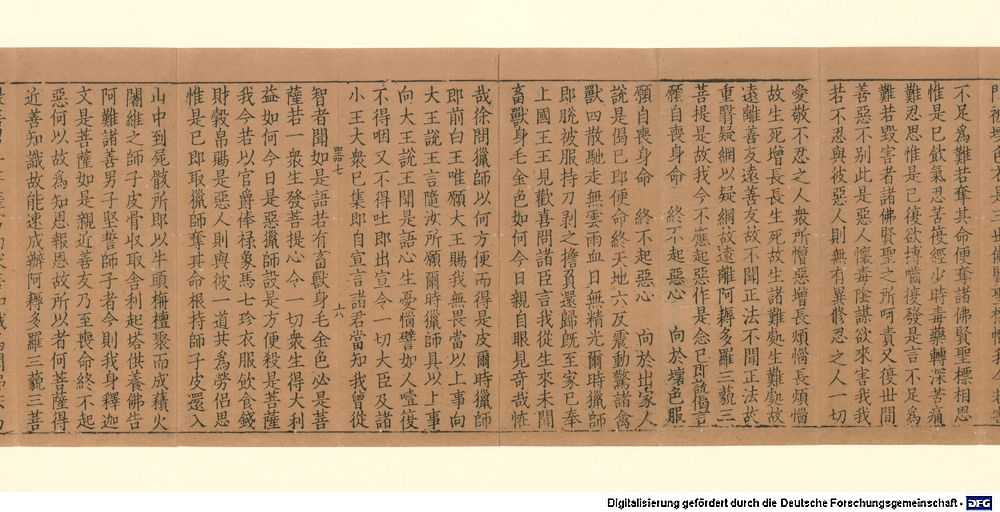 不足為難若奪其命便奪諸佛賢聖標相思
惟是已飲氣忍苦復經少時毒藥轉深苦痛
難忍思惟是已復欲摶嚙復發是言不足為
難若毀害者諸佛賢聖之所呵責又復世間
善惡不別此是惡人懷毒陰謀欲來害我我
若不忍與彼惡人則無有異修忍之人一切
愛敬不忍之人眾所憎惡增長煩惱長煩惱
故生死增長長生死故生諸難處生難處故
遠離善友遠善友故不聞正法不聞正法故
重翳疑網以疑網故遠離阿耨多羅三藐三
菩提是故我今不應起惡作是念已即說偈言
願自喪身命　終不起惡心　向於壞色服
願自喪身命　終不起惡心　向於出家人
說是偈已即便命終天地六反震動驚諸禽
獸四散馳走無雲雨血日無精光爾時獵師
即脫被服持刀剥之擔負還歸既至家已奉
上國王王見歡喜問諸臣言我從生來未聞
畜獸身毛金色如何今日親自眼見奇哉恠
哉徐問獵師以何方便而得是皮爾時獵師
即前白王唯願大王賜我無畏當以上事向
大王說王言隨汝所願爾時獵師具以上事
向大王說王聞是語心生憂惱譬如人噎復
不得咽又不得吐即出宣令一切大臣及諸
小王大眾已集即自宣言諸君當知我曾從
罌七　六
智者聞如是語若有畜獸身毛金色必是菩
薩若一眾生發菩提心令一切眾生得大利
益如何今日是惡獵師設是方便殺是菩薩
我今若以官爵俸祿象馬七珍衣服飲食錢
財穀帛賜是惡人則與彼一道共為勞侶思
惟是已即取獵師奪其命根持師子皮還入
山中到屍骸所即以牛頭栴檀聚而成積火
闍維之師子皮骨收取舍利起塔供養佛告
阿難諸善男子堅誓師子者今則我身釋迦
文是菩薩如是親近善友乃至喪命終不起
惡何以故為知恩報恩故所以者何菩薩得
近善知識故能速成辦阿耨多羅三藐三菩
Digitalisierung gefördert durch die Deutsche Forschungsgemeinschaft - DFG